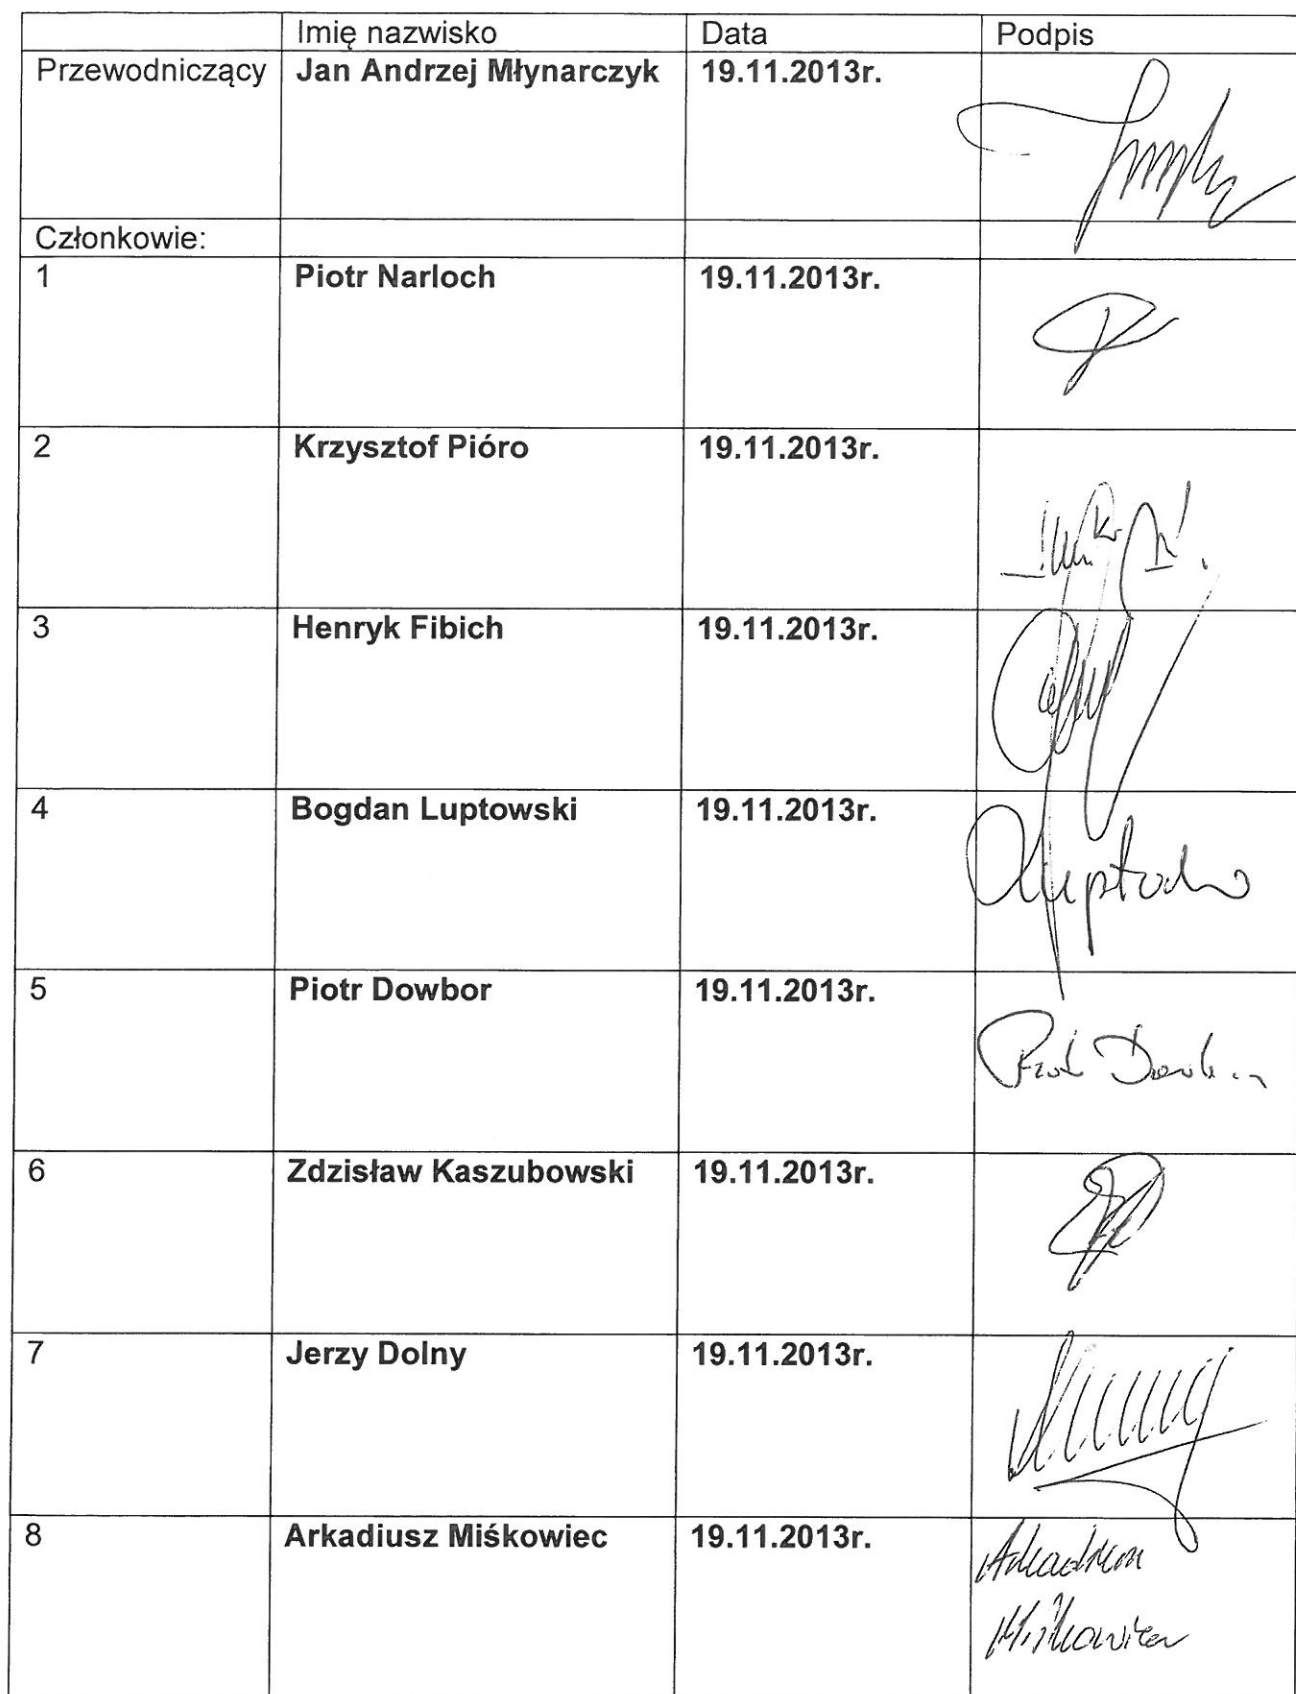 Imię nazwisko Data Podpis
Przewodniczący Jan Andrzej Młynarczyk 19.11.2013r.
Członkowie:
1 Piotr Narloch 19.11.2013r.
2 Krzysztof Pióro 19.11.2013r.
3 Henryk Fibich 19.11.2013r.
4 Bogdan Luptowski 19.11.2013r.
5 Piotr Dowbor 19.11.2013r.
6 Zdzisław Kaszubowski 19.11.2013r.
7 Jerzy Dolny 19.11.2013r.
8 Arkadiusz Miśkowiec 19.11.2013r.
Arkadiusz
Miśkowiec